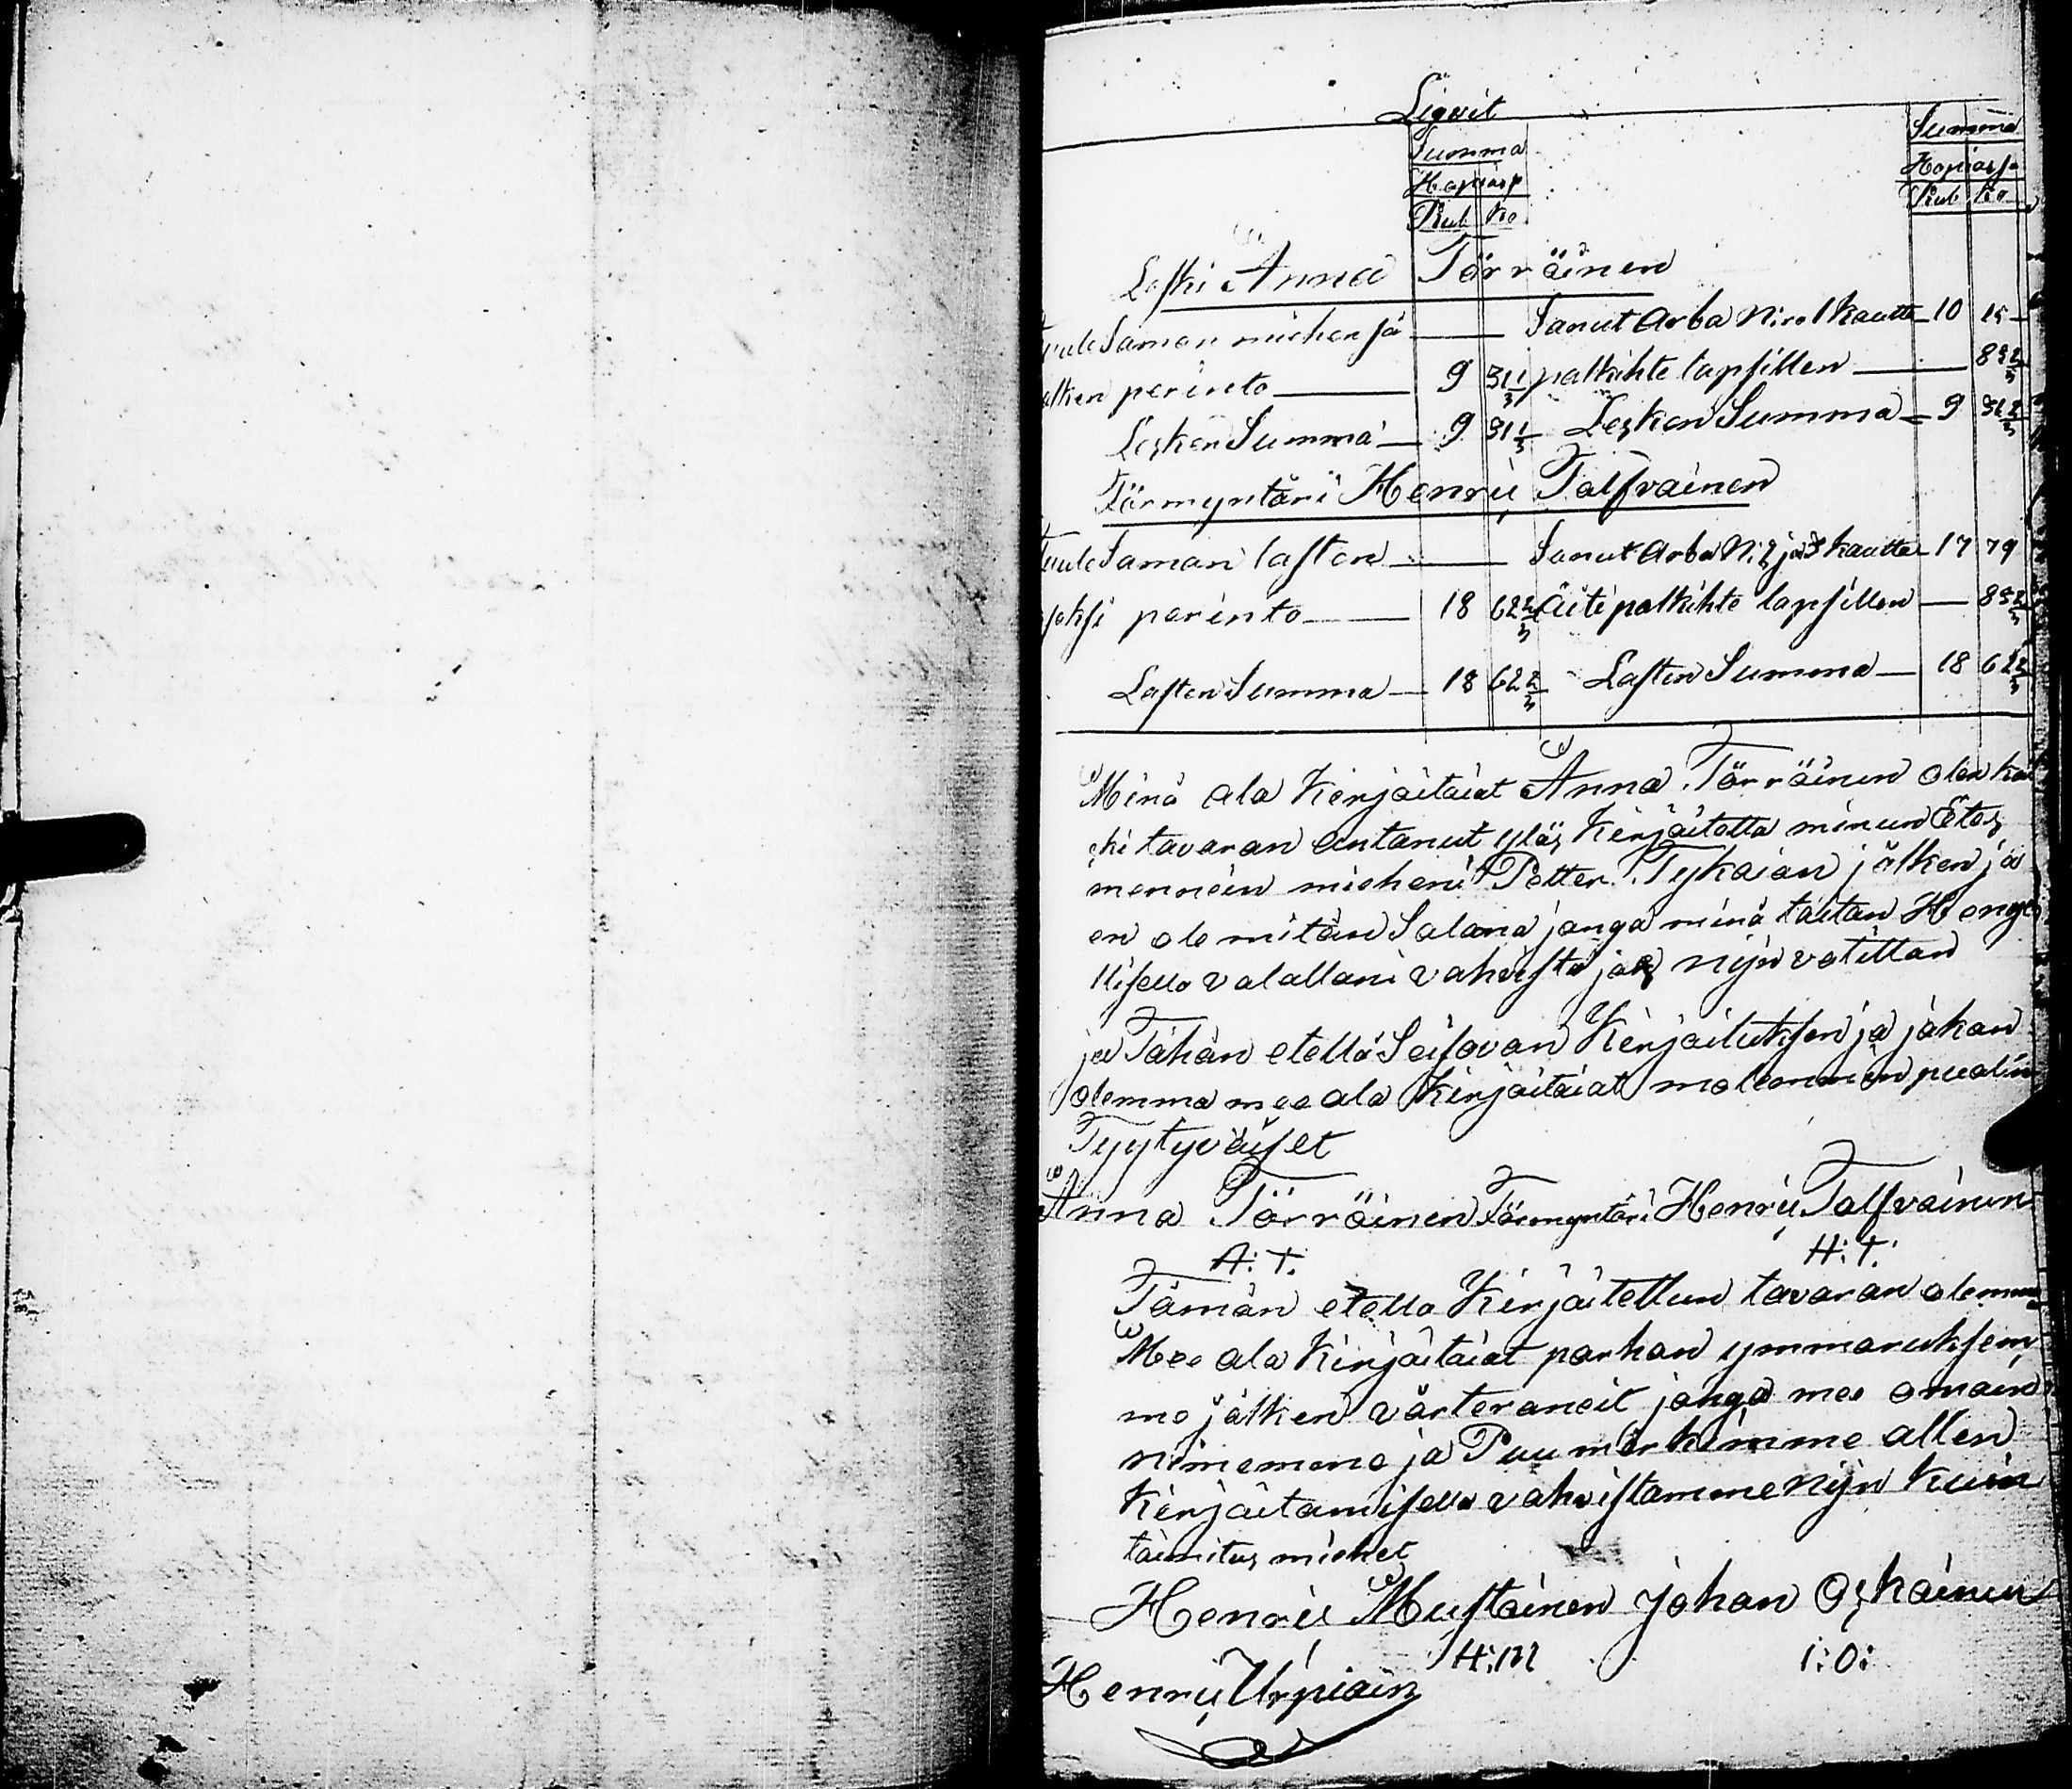 Liqvit
Summa Summa
Hopiasp Hopiasſa
Rub Ko Rub Ko
Leſki Anna Törröinen
Tule Saman miehensä — Sanut Arba No 1 kautta — 10 15
jälken perinto — 9 31 1/3 palkihte lapsillen — 83 2/3
Lesken Summa — 9 31 1/3 Lesken Summa — 9 31 2/3
Förmyntäri Henrij Talfvainen
Tule Saman laſten — Sanut Arba N: 2 ja 3 kautta — 17 79
perinto — 18 62 2/3 Äiti palkihte lapſillen — 83 2/3
Laſten Summa — 18 62 2/3 Laſten Summa — 18 62 2/3
Minä ala Kirjäitäiat Anna Törröinen olen kai
ki tavaran antanut ylös Kirjäitetta minun Etes
mennein mieheni Petter Tykaian jälken ja
en ole mitän Salana janga minä taitan Henge
llisella valallani vahviſta jos nijn vatitan
ja Tähän etellä Seiſovan Kirjäituksen ja jakan
olemma mee ala Kirjäitäiat molemmin puolin
Tyytyväiſet
Anna Törröinen Förmyntäri Henrij Talfvainen
A: T. H: T:
Tämän etella Kirjäitettun tavaran olemma
Mee ala Kirjäitäiat parhan ymmarukſem
me jälken värteraneit janga mee omain
nimemme ja Puumärkimme allen
Kirjäitamiſella vahviſtamme nijn kuin
toimitus miehet
Henrij Muſtoinen Johan Oskainen
H: M I: O:
Henrij Urpiain